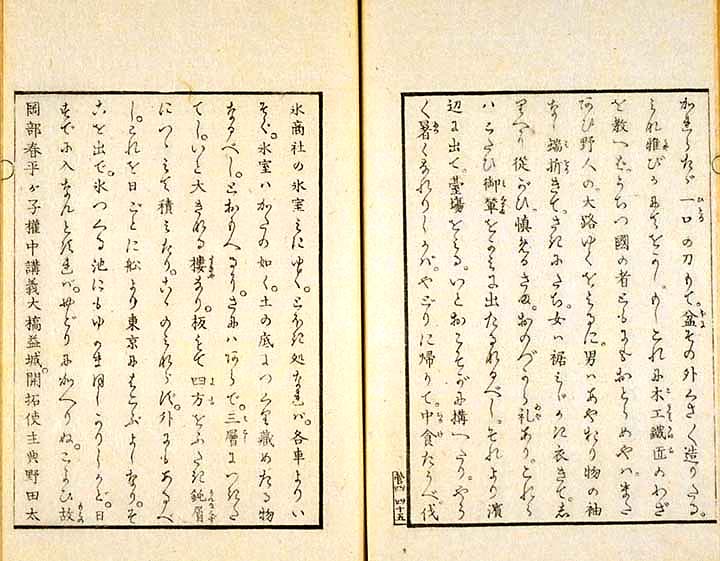 たゞ一口の刀もて。盆その外くさ〴〵造りたる。
雅びかにてをかし。もしこれに木工鐵匠のわざ
を教へば。うちつ國の者どもにもおとらめやは。また
野人の。大路ゆくをみるに。男はあやおり物の袖
なし端折きて。さきにたち。女は裾みじかき衣きて。志
りへより從がひ。慎みたるさま。おのづから礼あり。これら
ハこたび御輦ををがみに出たるなるべし。それより濱
辺に出て。臺場をみる。いとおごそかに搆へたり。やう
く暑くなれりしかバ。やどりに帰りて。中食たうべ。伐
巻四 四十五
氷商社の氷室みにゆく。とほき処なれば。各車よりい
そぐ。氷室ハかたの如く。土の底につくり藏めたる物
なるべし。とおもへるに。さにハあらで。三層につくりた
てし。いと大きなる樓なり。板もて四方をふたぎ鋸屑
につゝみて積みたり。こゝのみならず。外にもあるべ
し。これを日ごとに舩より東京にはこぶよしなり。そ
こを出で。氷つくる池にもゆかまほしかりしかど。日
すでに入なんとすれば。やどりにかへりぬ。こよひ故
岡部春平が子權中講義大橋益城。開拓使主典野田太